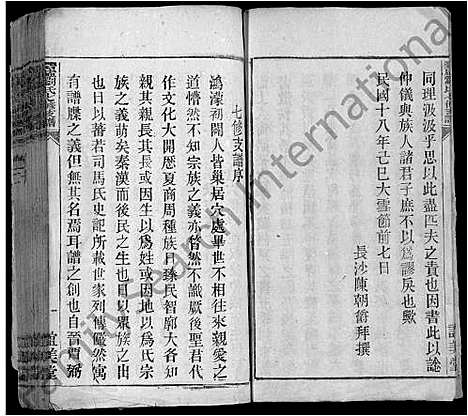 同理汲汲乎思以此盡匹夫之責也因書此以諗
仲儀與族人諸君子庶不以爲謬戾也歟
民國十八年己巳大雪節前七日
長沙陳朝爵拜撰
七修支譜序
鴻濛初闢人皆巢居穴處畢世不相往來親愛之
道懵然不知宗族之義亦當然不識厥後聖君代
作文化大開歷夏商周種族日繁民智廓大各知
親其親長其長或因生以爲姓或因地以爲氏宗
族之義萌矣秦漢而後民之生也日以眾族之由
也日以蕃若司馬氏史記所載世家列傳儼然寓
有譜牒之義但無其名焉耳譜之創也自
mysearch International